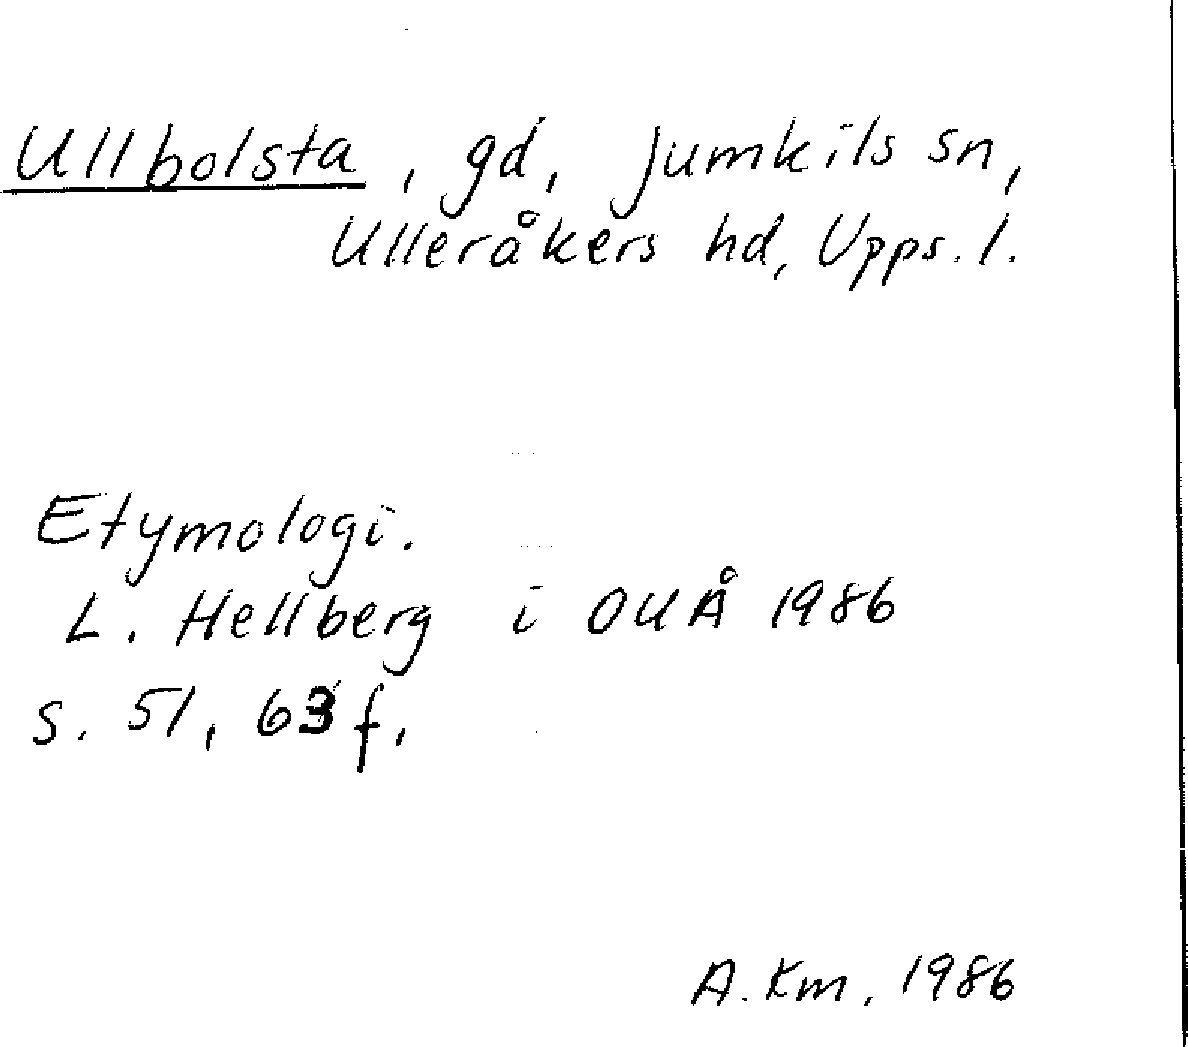 Ullbolsta, gd, Jumkils sn,
Ulleråkers hd, Upps. l.
Etymologi.
L. Hellberg i OUÅ 1986
s. 51, 63 f.
A. Km. 1986